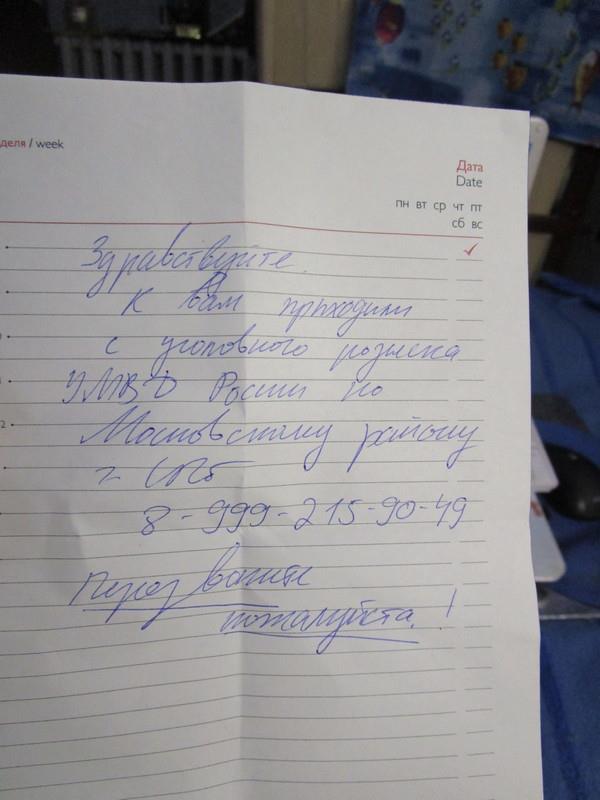 деля / week
Дата
Date
пн вт ср чт пт
сб вс
Здравствуйте.
К вам приходили
с уголовного розыска
УМВД России по
Московскому району
г СПб
8-999-215-90-49
Перезвоните
пожалуйста. !